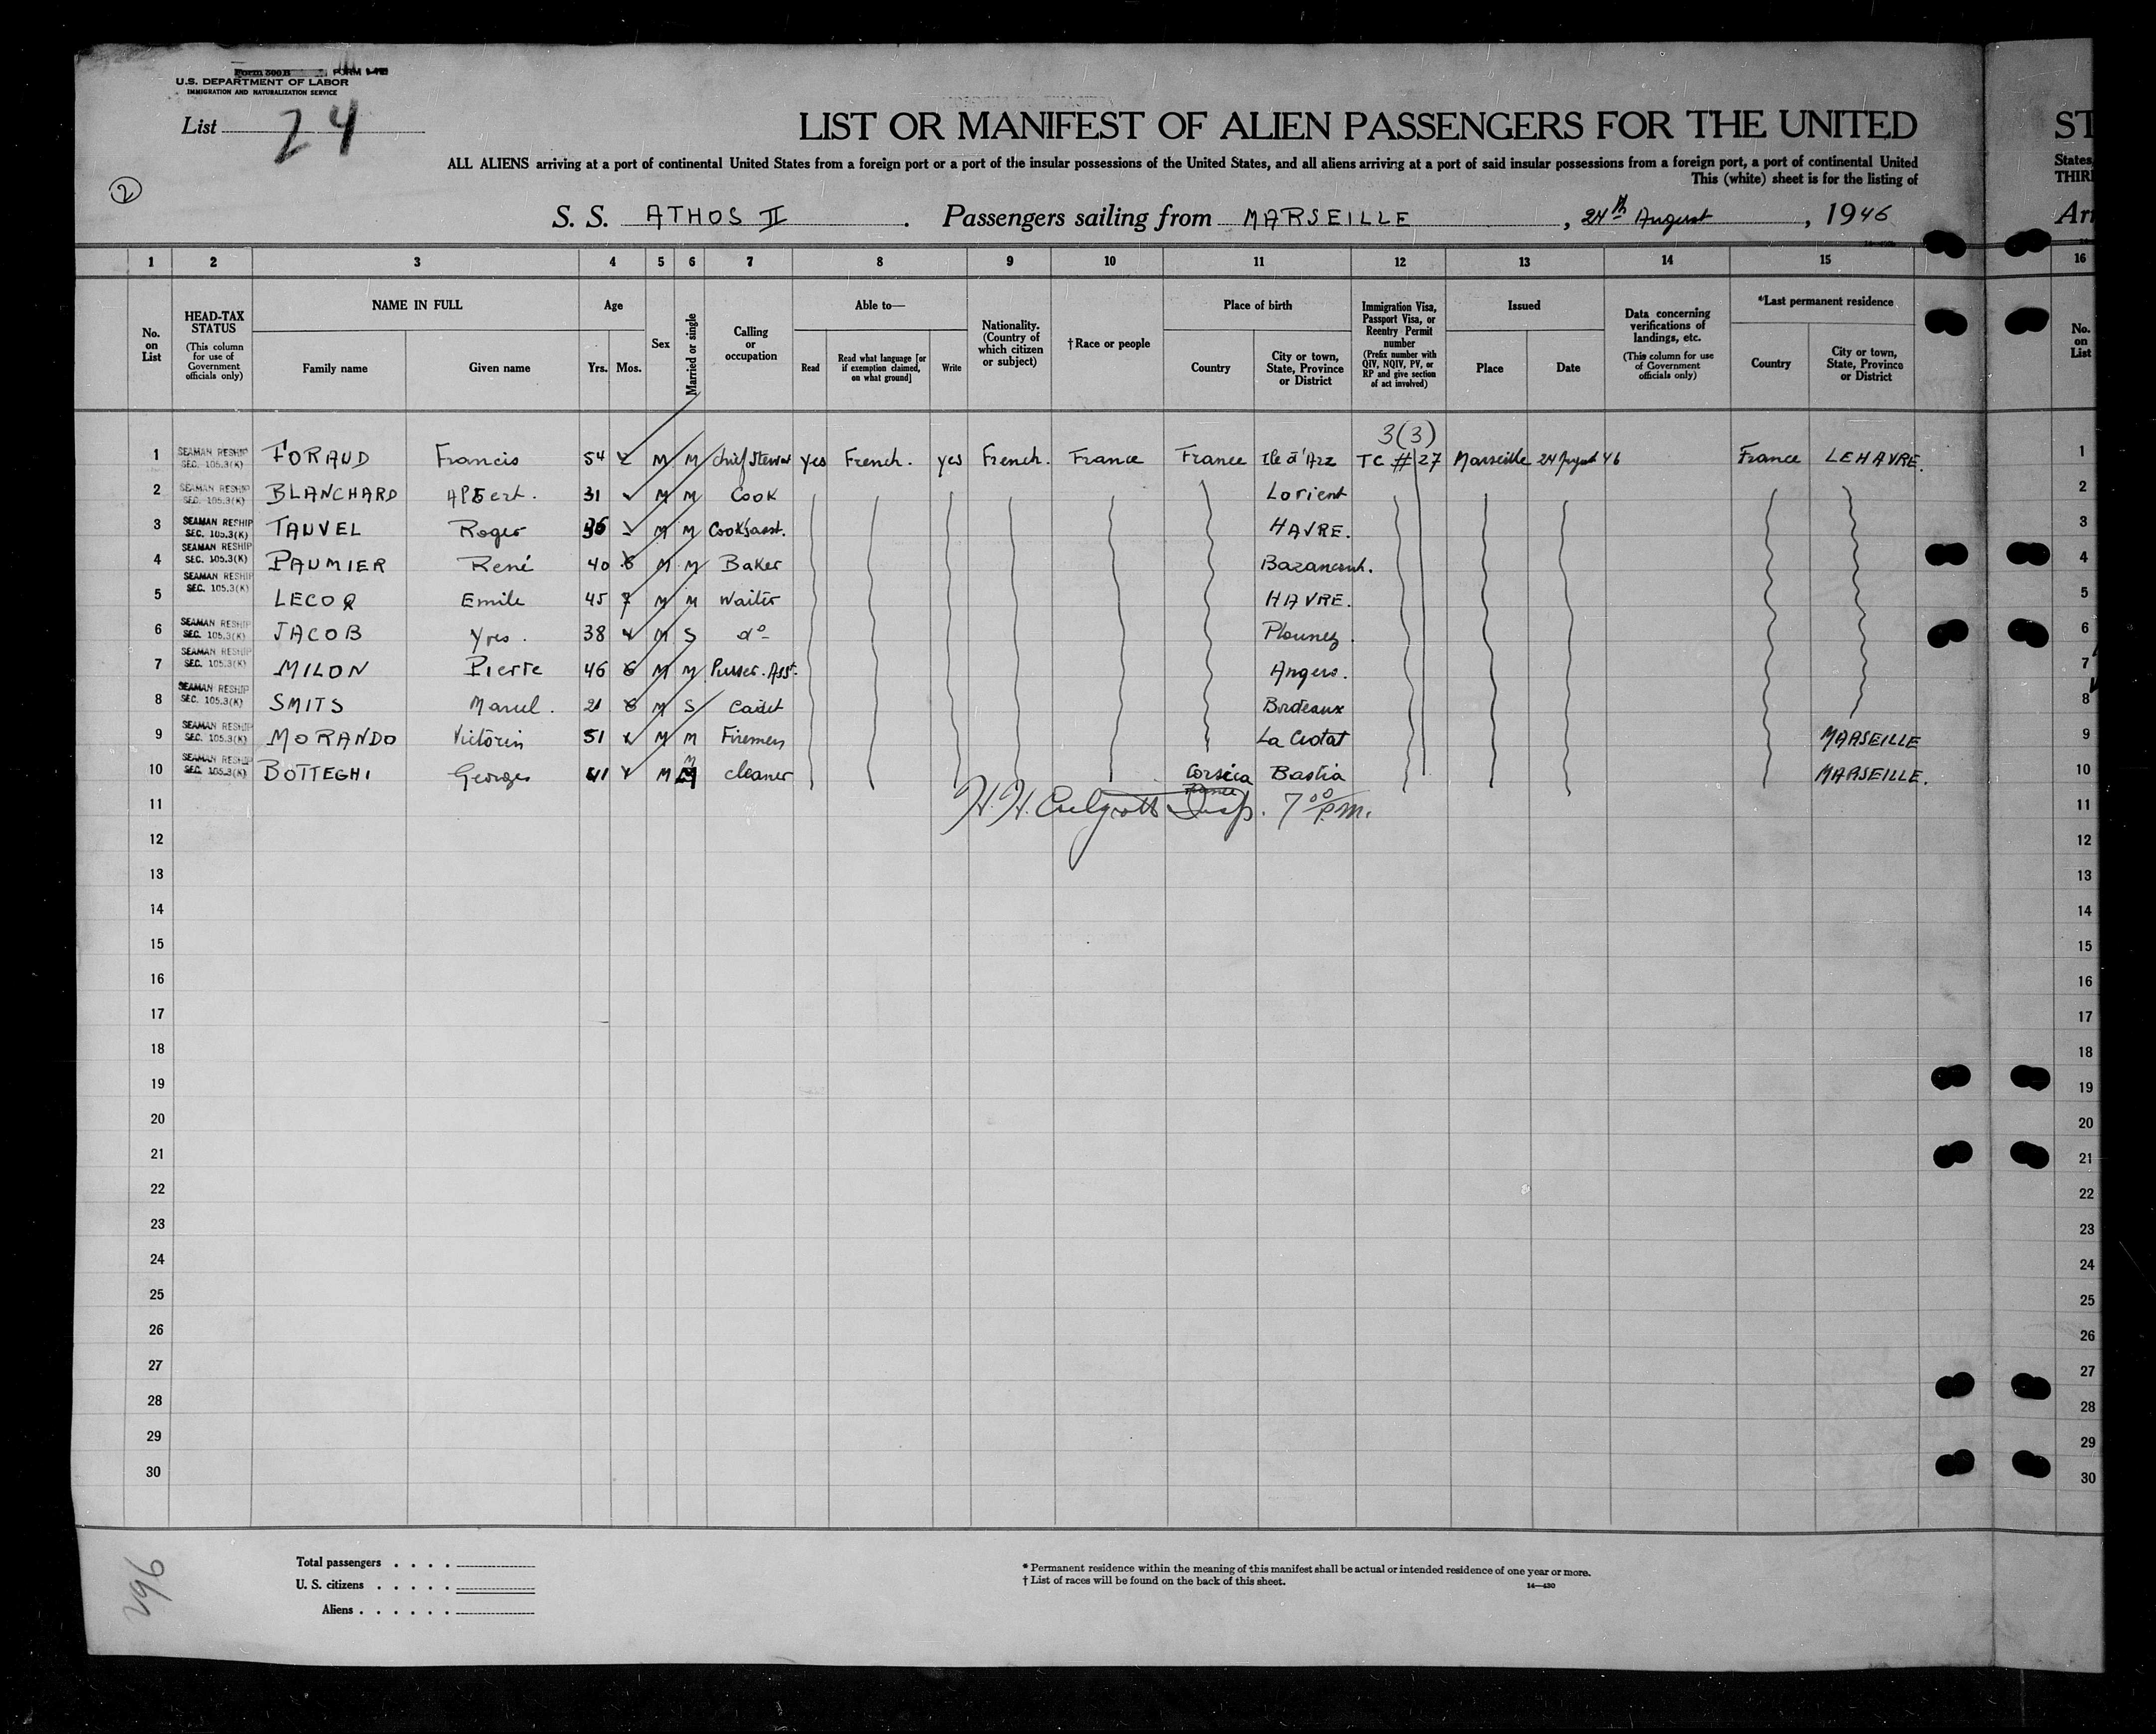 U.S. DEPARTMENT OF LABOR
IMMIGRATION AND NATURALIZATION SERVICE
List 24
2
LIST OR MANIFEST OF ALIEN PASSENGERS FOR THE UNITED
ST
ALL ALIENS arriving at a port of continental United States from a foreign port or a port of the insular possessions of the United States, and all aliens arriving at a port of said insular possessions from a foreign port, a port of continental United
States,
This (white) sheet is for the listing of
THIR
S. S. ATHOS II. Passengers sailing from MARSEILLE, 24th August, 1946
Arr
1 2 3 4 5 6 7 8 9 10 11 12 13 14 15 16
No. on List
HEAD-TAX STATUS (This column for use of Government officials only)
NAME IN FULL Family name Given name
Age Yrs. Mos.
Sex
Married or single
Calling or occupation
Able to— Read Read what language [or if exemption claimed, on what ground] Write
Nationality. (Country of which citizen or subject)
†Race or people
Place of birth Country City or town, State, Province or District
Immigration Visa, Passport Visa, or Reentry Permit number (Prefix number with QIV, NQIV, PV, or RP and give section of act involved)
Issued Place Date
Data concerning verifications of landings, etc. (This column for use of Government officials only)
*Last permanent residence Country City or town, State, Province or District
No. on List
3(3)
1 SEAMAN RESHIP SEC. 105.3(K) FORAUD Francis 54 M M chief Stewar yes French. yes French. France France Ile d'Arz TC # 27 Marseille 24 August 46 France LEHAVRE. 1
2 SEAMAN RESHIP SEC. 105.3(K) BLANCHARD Albert. 31 M M Cook Lorient 2
3 SEAMAN RESHIP SEC. 105.3(K) TAUVEL Roger 36 M M Cook's asst. HAVRE. 3
4 SEAMAN RESHIP SEC. 105.3(K) PAUMIER René 40 M M Baker Bazancourt. 4
5 SEAMAN RESHIP SEC. 105.3(K) LECOQ Emile 45 M M Waiter HAVRE. 5
6 SEAMAN RESHIP SEC. 105.3(K) JACOB Yves. 38 M S do Plounez. 6
7 SEAMAN RESHIP SEC. 105.3(K) MILON Pierre 46 M M Purser. Asst. Angers. 7
8 SEAMAN RESHIP SEC. 105.3(K) SMITS Marcel. 21 M S Cadet Bordeaux 8
9 SEAMAN RESHIP SEC. 105.3(K) MORANDO Victorin 51 M M Firemen La Ciotat MARSEILLE 9
10 SEAMAN RESHIP SEC. 105.3(K) BOTTEGHI Georges 41 M M cleaner Corsica Bastia MARSEILLE. 10
11 H.H. Insp. 7 00 P.M. 11
12 12
13 13
14 14
15 15
16 16
17 17
18 18
19 19
20 20
21 21
22 22
23 23
24 24
25 25
26 26
27 27
28 28
29 29
30 30
Total passengers . . . .
U. S. citizens . . . . .
Aliens . . . . . .
* Permanent residence within the meaning of this manifest shall be actual or intended residence of one year or more.
† List of races will be found on the back of this sheet.
14—430